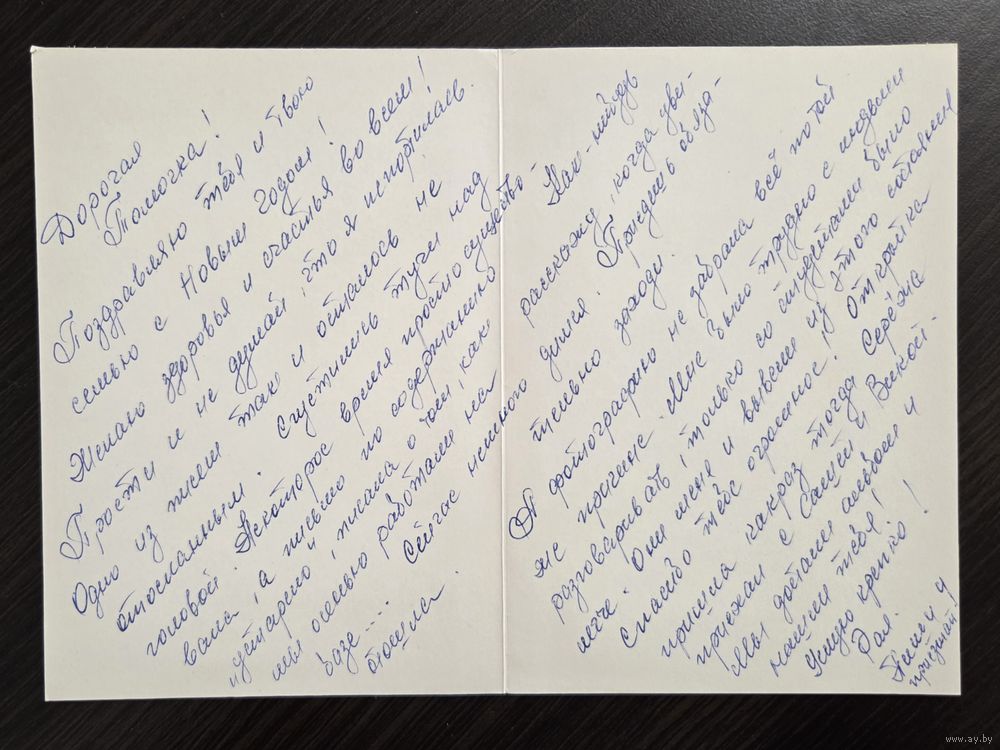 Дорогая
Томочка!
Поздравляю тебя и твою
семью с Новым годом!
Желаю здоровья и счастья во всём!
Прости и не думай, что я испортилась.
Одно из писем так и осталось не
отосланным. Сгустились тучи над
головой. Некоторое время просто существо-
вала, а письмо по содержанию
"устарело", писала о том, как
мы осенью работали на
базе... Сейчас немного
отошла.
Как-нибудь
расскажу, когда уви-
димся. Приедешь обяза-
тельно заходи.
А фотографию не забрала всё по той
же причине. Мне было трудно с людьми
разговаривать, только со студентами было
легче. Они меня и вывели из этого состояния
Спасибо тебе огромное! Открытка
пришла как раз тогда, Серёжа
приезжал с Сашей и Викой.
Мы достали альбом и
нашли тебя!
Целую крепко!
Рая.
Пиши и
приезжай!
www.ay.by